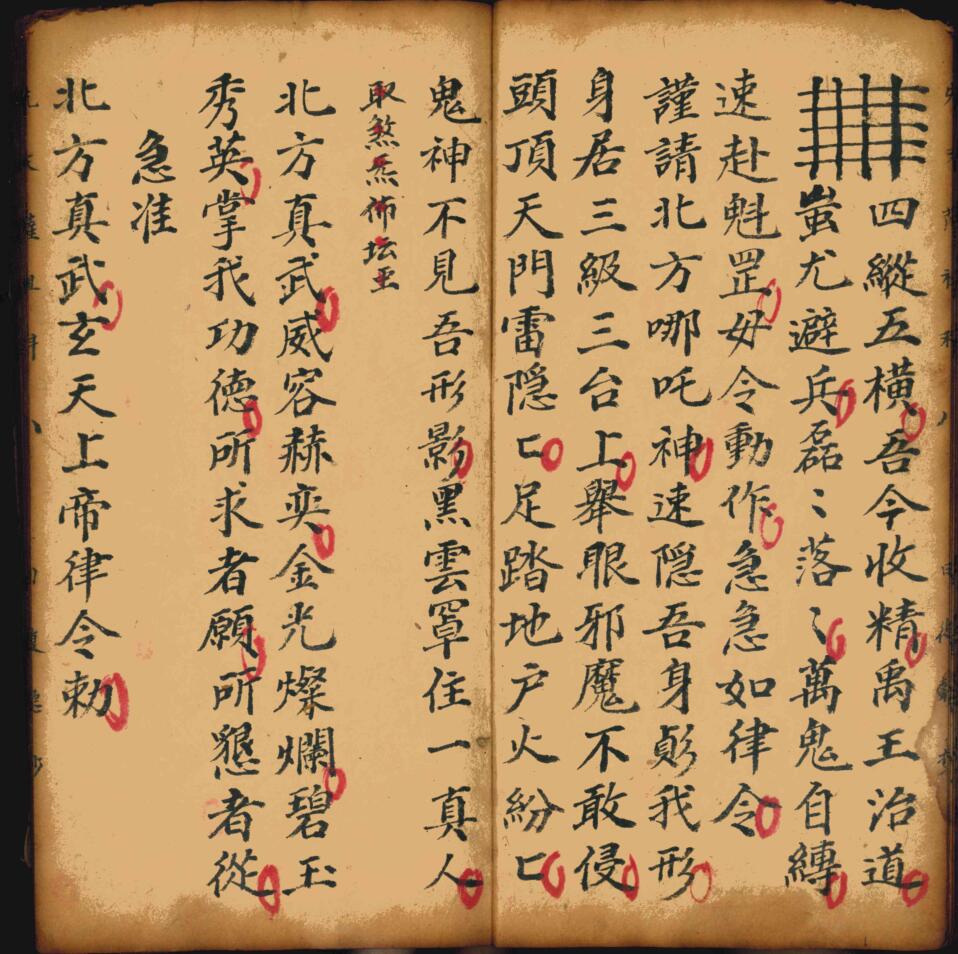 四縱五橫吾今收精禹王治道
蚩尤避兵磊〻落〻萬鬼自縛
速赴魁罡毋令動作急急如律令
謹請北方哪吒神速隐吾身我形
身居三級三台上舉眼邪魔不敢侵
頭頂天門雷隐匕足踏地户火紛匕
鬼神不見吾形影黑雲罩住一真人
取煞炁佈坛
北方真武威容赫奕金光燦爛碧玉
秀英掌我功德所求者願所懇者從
急准
北方真武玄天上帝律令勅